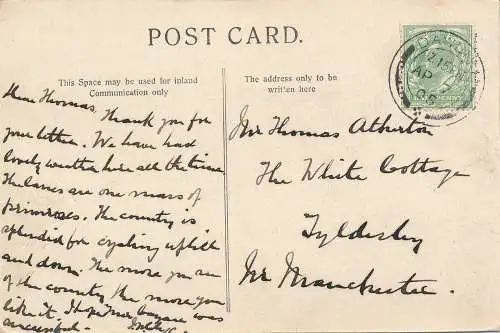 POST CARD.
This Space may be used for inland
Communication only
The address only to be
written here
Dear Thomas, Thank you for
your letter. We have had
lovely weather here all the time
The lanes are one mass of
primroses. The country is
splendid for cycling uphill
and down. The more you see
of the country the more you
like it. I hope was
Mr Thomas Atherton
The White Cottage
Tyldesley
Nr Manchester.
AP 7